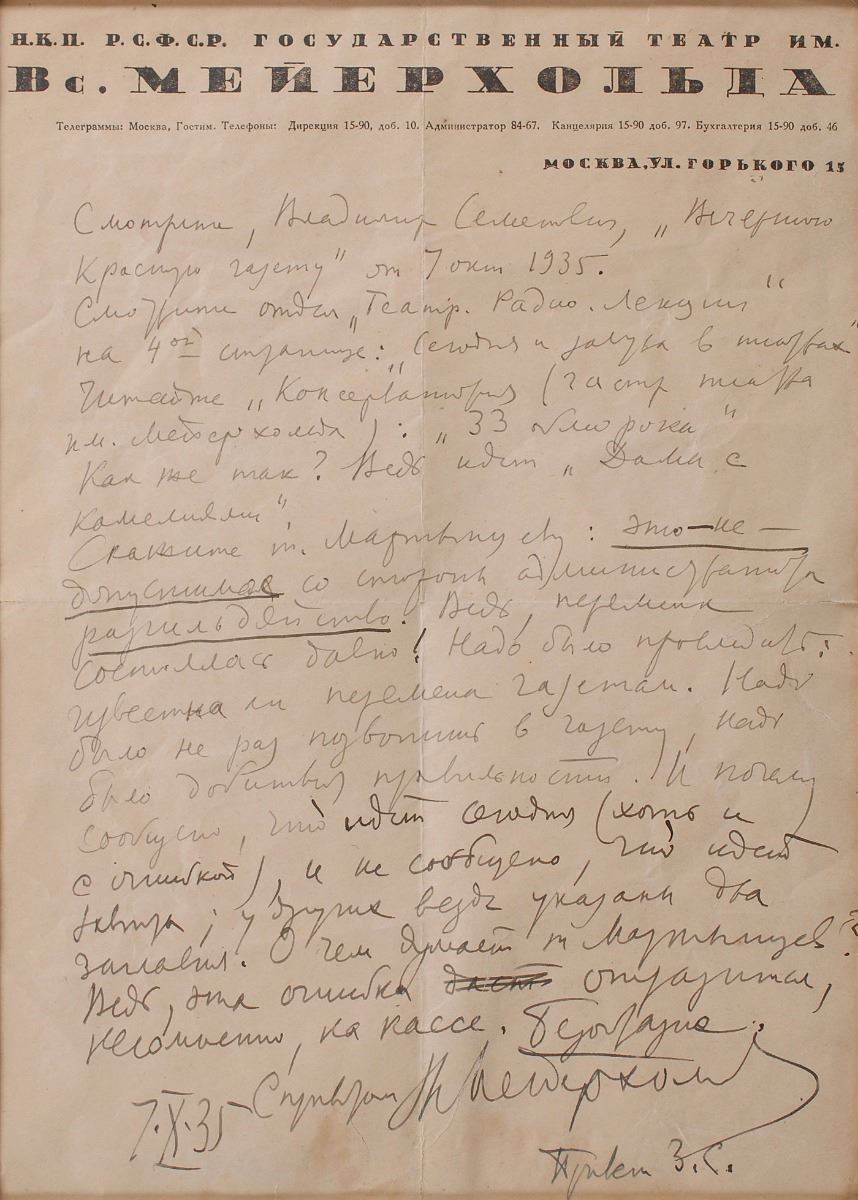 Н.К.П. Р.С.Ф.С.Р. ГОСУДАРСТВЕННЫЙ ТЕАТР ИМ.
Вс. МЕЙЕРХОЛЬДА
Телеграммы: Москва, Гостим. Телефоны: Дирекция 15-90, доб. 10. Администратор 84-67. Канцелярия 15-90 доб. 97. Бухгалтерия 15-90 доб. 46
МОСКВА, УЛ. ГОРЬКОГО 15
Смотрите, Владимир Семенович, „Вечернюю
Красную газету" от 7 окт 1935.
Смотрите отдел „Театр. Радио. Лекции"
на 4ой странице: „Сегодня и завтра в театрах"
Читайте „Консерватория (гастр театра
им. Мейерхольда): „33 обморока"
Как же так? Ведь идет „Дама с
камелиями".
Скажите т. Мартынцеву: это – не –
допустимое со стороны администратора
разгильдяйство. Ведь, перемена
состоялась давно! Надо было проследить:
известна ли перемена газетам. Надо
было не раз позвонить в газету, надо
было добиться правильности. И почему
сообщено, что идет сегодня (хоть и
с ошибкой), и не сообщено, что идет
завтра; у других везде указаны два
заглавия. О чем думает т Мартынцев?
Ведь, эта ошибка отразится,
несомненно, на кассе. Безобразие.
С приветом В Мейерхольд
7.X.35
Привет З.С.